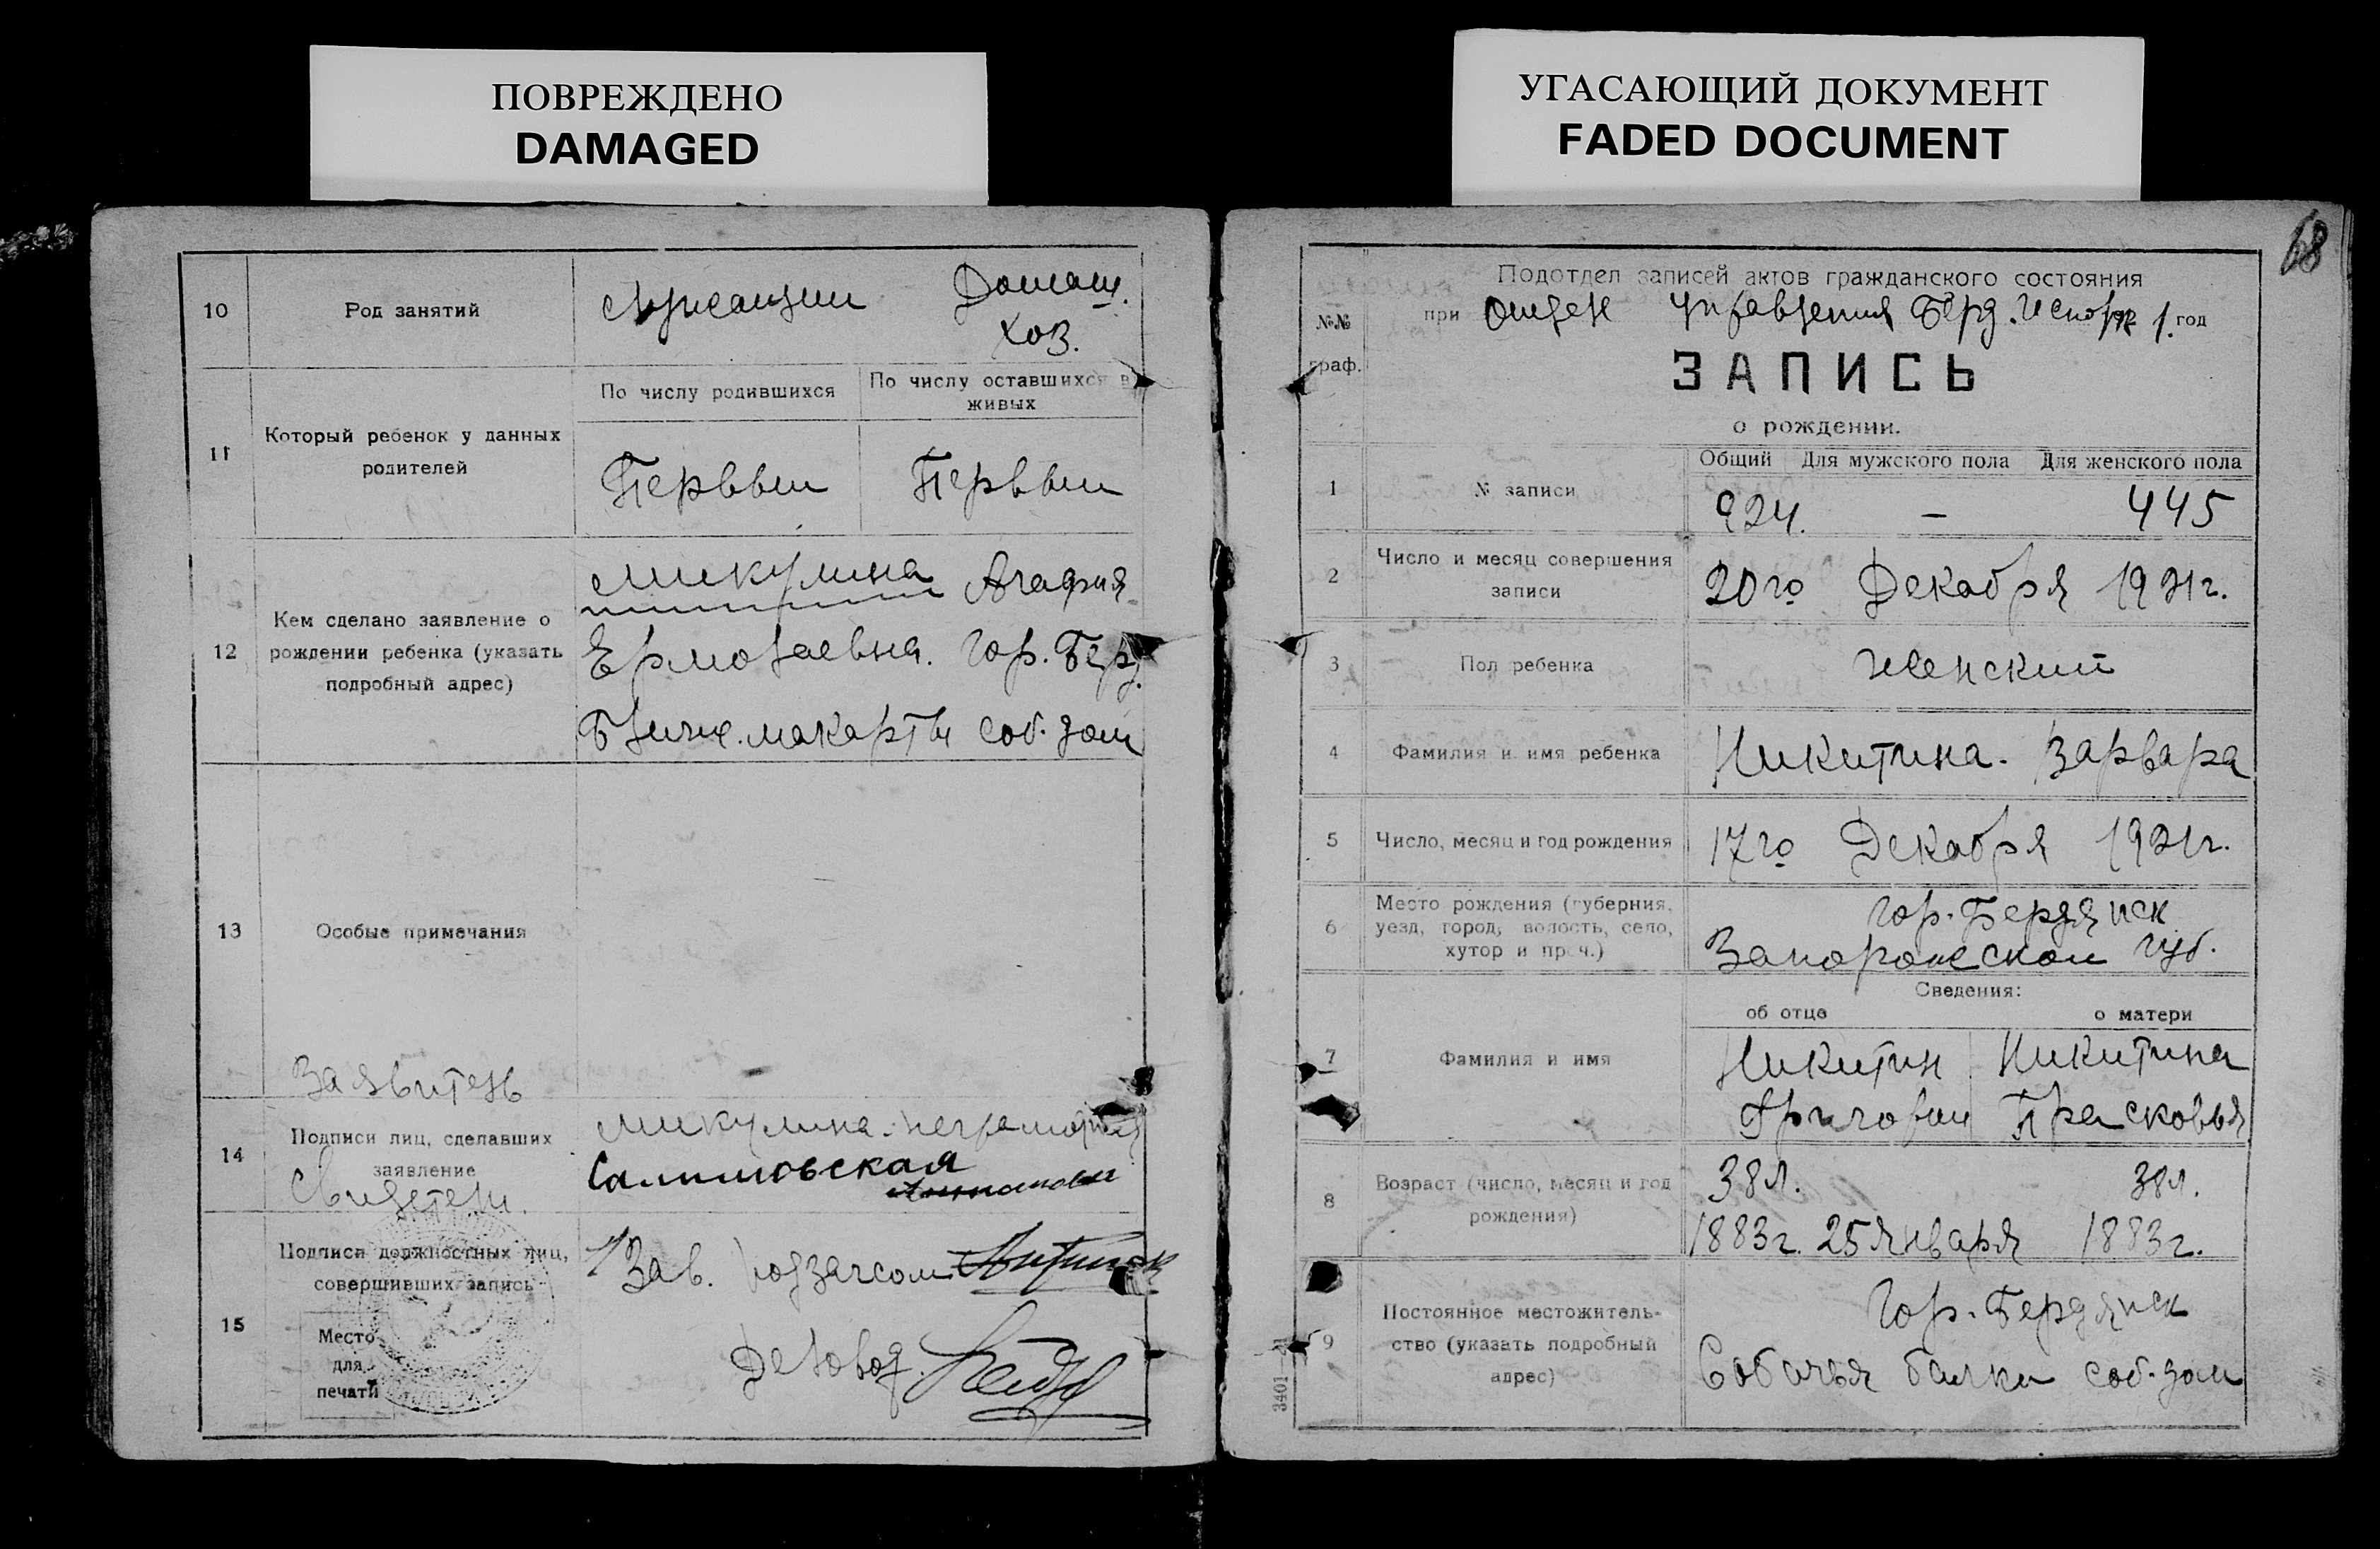 ПОВРЕЖДЕНО
DAMAGED
УГАСАЮЩИЙ ДОКУМЕНТ
FADED DOCUMENT
10 Род занятий Служащий Домаш.
хоз.
По числу родившихся По числу оставшихся в живых
11 Который ребенок у данных родителей
Первый Первый
12 Кем сделано заявление о рождении ребенка (указать подробный адрес)
Микулина Агафия
Ермолаевна. Гор. Берд.
Ближ. макорты соб. дом
13 Особые примечания
Заявитель
14 Подписи лиц, сделавших заявление
Микулина неграмотная
Свидетели.
15 Подписи должностных лиц, совершивших запись
Зав. подзагсом
Место
для
печати
Деловод.
68
Подотдел записей актов гражданского состояния
№№ граф.
при Отделе Управления Берд. Испол 1921 год
ЗАПИСЬ
о рождении.
Общий Для мужского пола Для женского пола
1 № записи 924. — 445
2 Число и месяц совершения записи 20го Декабря 1921г.
3 Пол ребенка Женский
4 Фамилия и имя ребенка Никитина. Варвара
5 Число, месяц и год рождения 17го Декабря 1921г.
6 Место рождения (губерния, уезд, город, волость, село, хутор и проч.)
гор. Бердянск
Запорожской губ.
Сведения:
об отце о матери
7 Фамилия и имя
Никитин Никитина
Григорий Прасковья
8 Возраст (число, месяц и год рождения)
38 л. 38 л.
1883г. 25 января 1883г.
9 Постоянное местожительство (указать подробный адрес)
Гор. Бердянск
Собачья балка соб. дом
3401—21